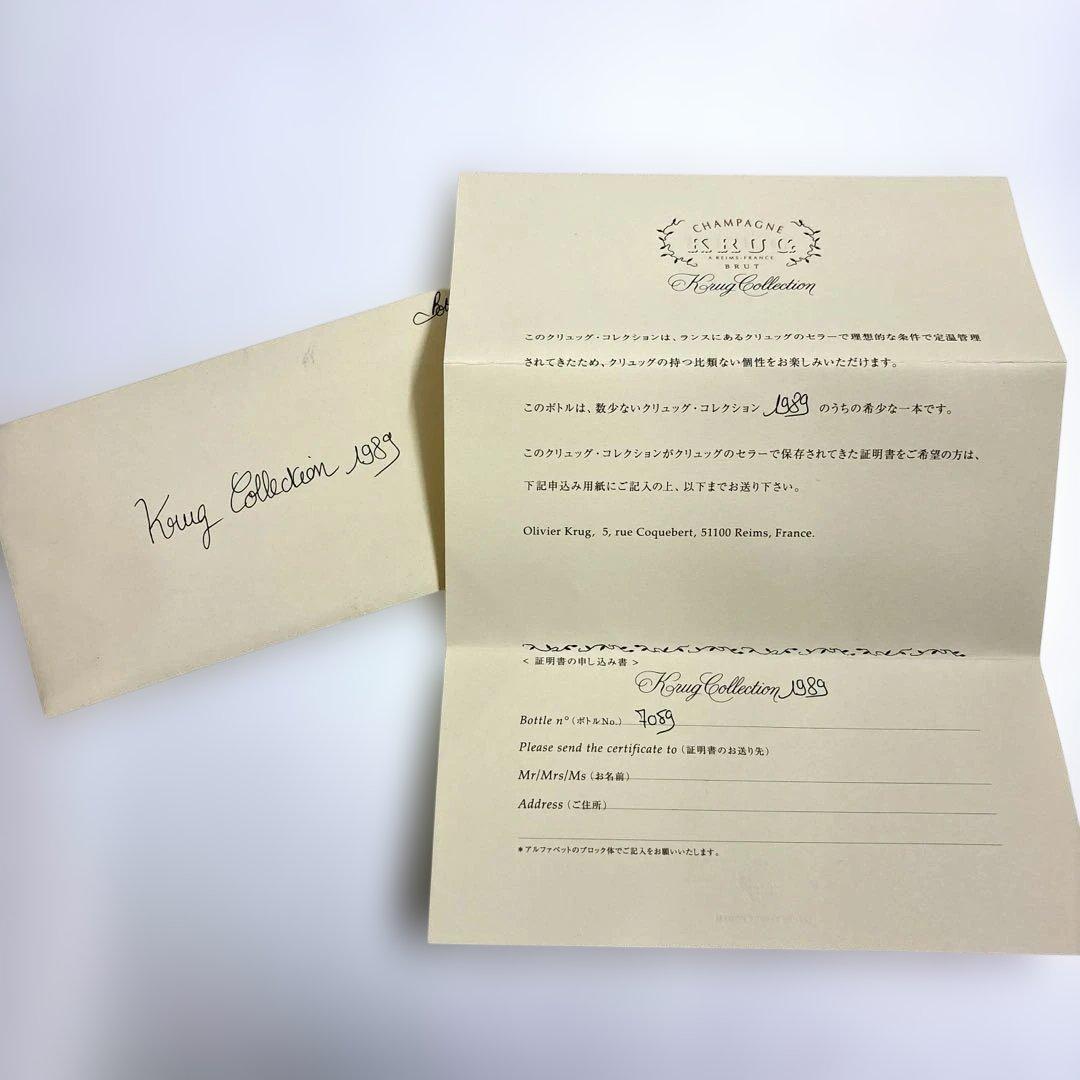 Krug Collection 1989
CHAMPAGNE
KRUG
A REIMS-FRANCE
BRUT
Krug Collection
このクリュッグ・コレクションは、ランスにあるクリュッグのセラーで理想的な条件で定温管理
されてきたため、クリュッグの持つ比類ない個性をお楽しみいただけます。
このボトルは、数少ないクリュッグ・コレクション 1989 のうちの希少な一本です。
このクリュッグ・コレクションがクリュッグのセラーで保存されてきた証明書をご希望の方は、
下記申込み用紙にご記入の上、以下までお送り下さい。
Olivier Krug, 5, rue Coquebert, 51100 Reims, France.
< 証明書の申し込み書 >
Krug Collection 1989
Bottle n° (ボトルNo.) 7089
Please send the certificate to (証明書のお送り先)
Mr/Mrs/Ms (お名前)
Address (ご住所)
*アルファベットのブロック体でご記入をお願いいたします。